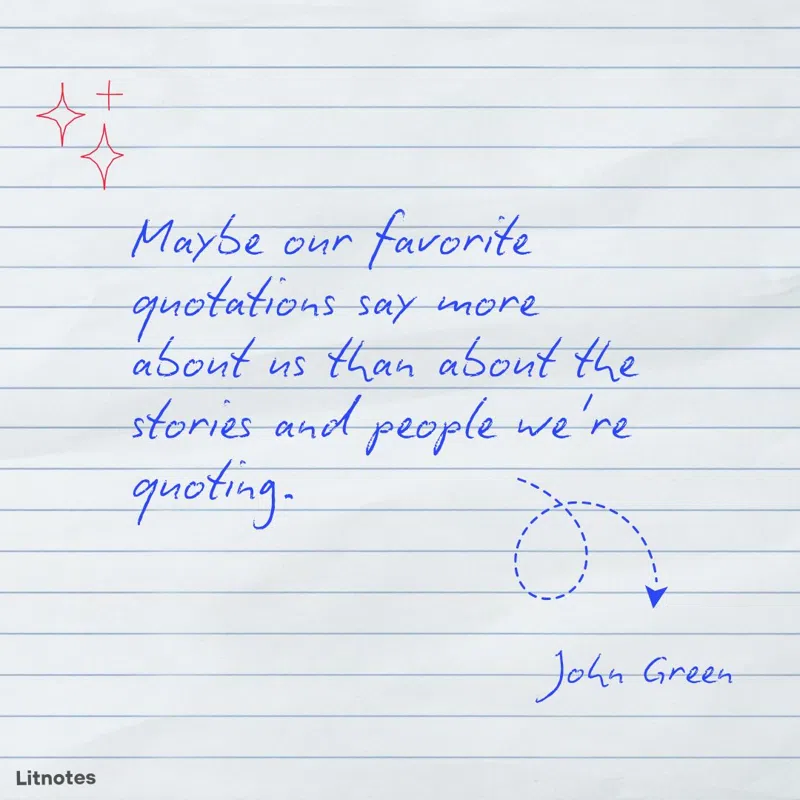 Maybe our favorite
quotations say more
about us than about the
stories and people we're
quoting.
John Green
Litnotes